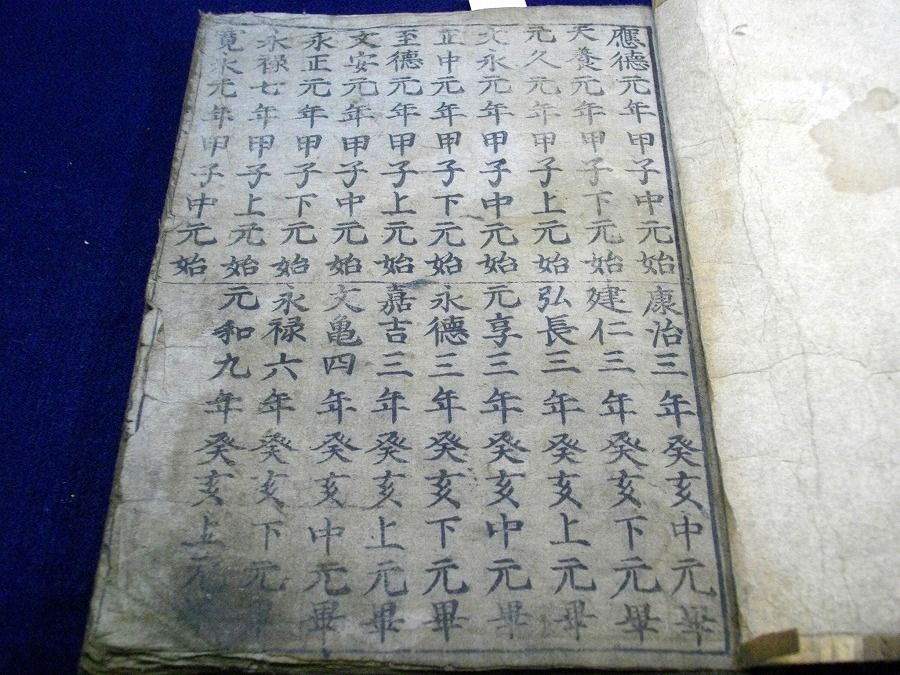 應德元年甲子中元始 康治三年癸亥中元畢
天養元年甲子下元始 建仁三年癸亥下元畢
元久元年甲子上元始 弘長三年癸亥上元畢
文永元年甲子中元始 元享三年癸亥中元畢
正中元年甲子下元始 永德三年癸亥下元畢
至德元年甲子上元始 嘉吉三年癸亥上元畢
文安元年甲子中元始 文亀四年癸亥中元畢
永正元年甲子下元始 永禄六年癸亥下元
永禄七年甲子上元始 元和九年癸亥上元
寛永元年甲子中元始